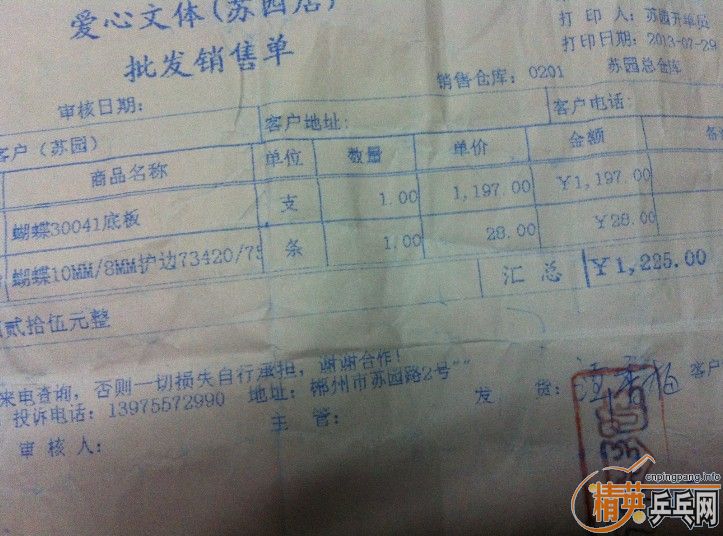 爱心文体(苏园店)
批发销售单
打 印 人: 苏园开单员
打印日期: 2013-07-29
销售仓库: 0201 苏园总仓库
审核日期:
客户地址:
客户电话:
客户（苏园）
商品名称 单位 数量 单价 金额
蝴蝶30041底板 支 1.00 1,197.00 ￥1,197.00
蝴蝶10MM/8MM护边73420/75 条 1.00 28.00 ￥28.00
汇 总 ￥1,225.00
贰拾伍元整
来电查询, 否则一切损失自行承担, 谢谢合作!
投诉电话: 13975572990 地址: 郴州市苏园路2号""
发 货: 客户
审 核 人:
主 管:
cnpingpang.info
精英乒乓网